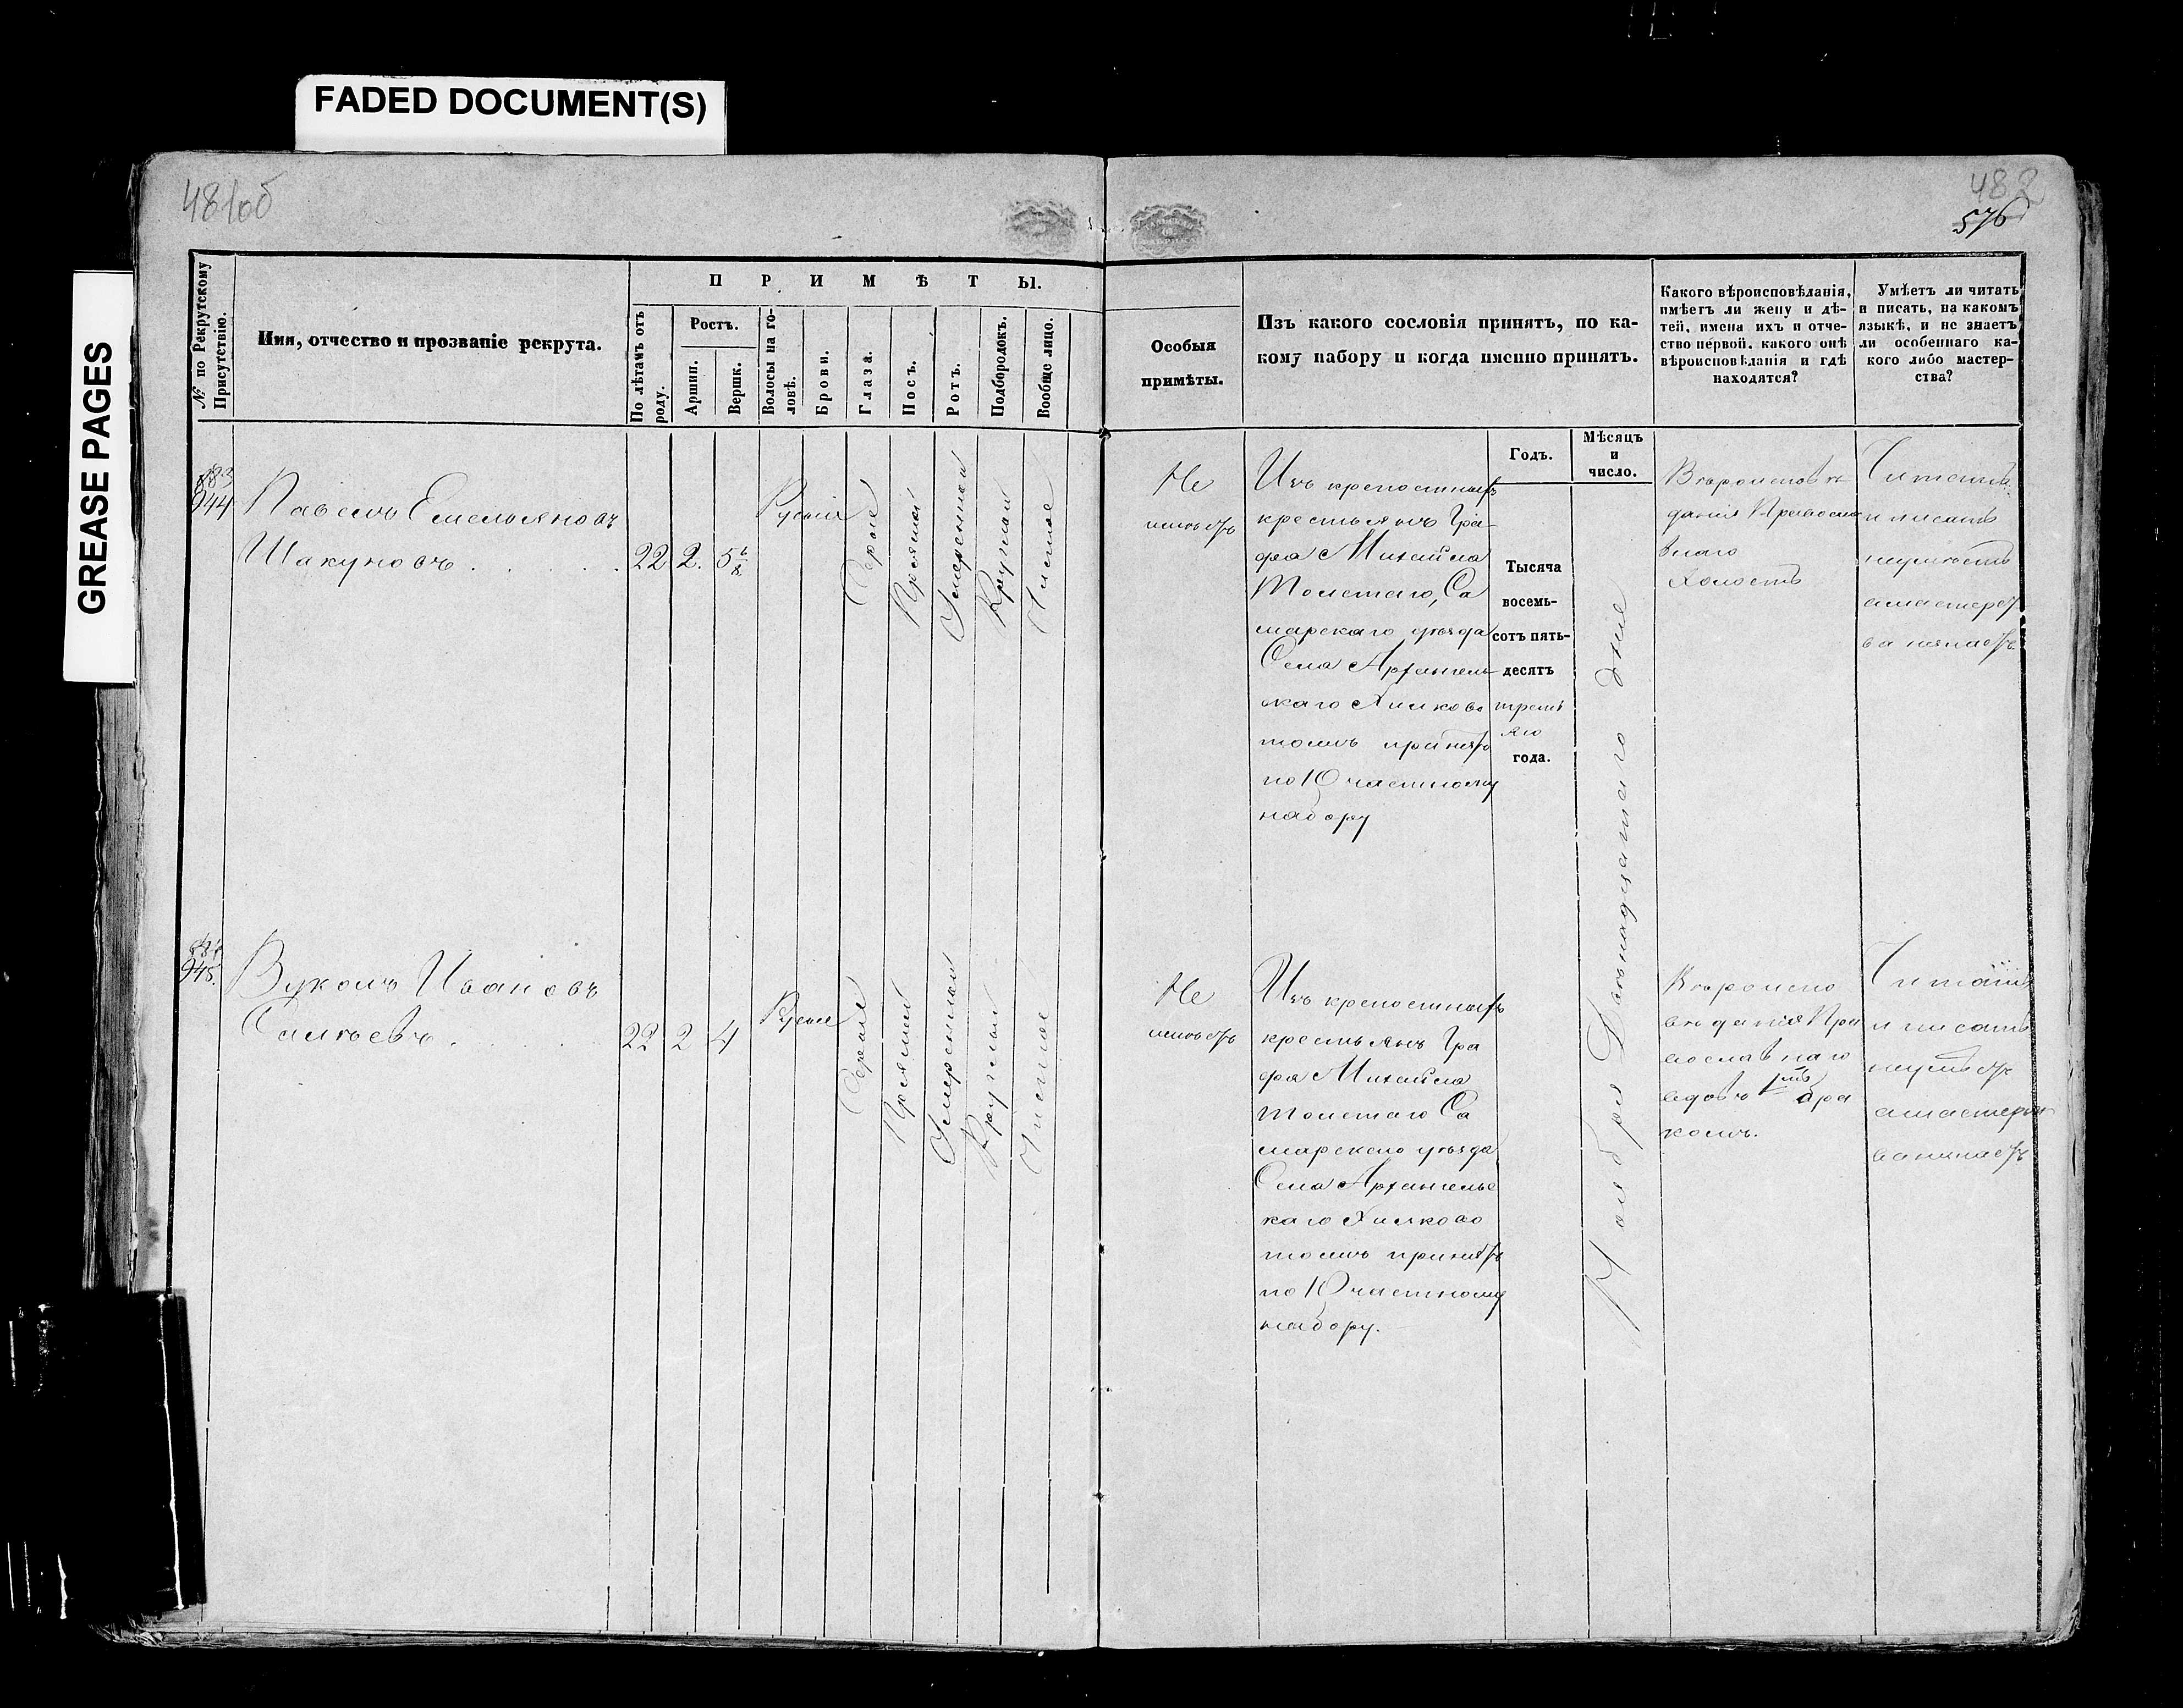 FADED DOCUMENT(S)
GREASE PAGES
481об
482
576
№ по Рекрутскому Присутствію.
Имя, отчество и прозваніе рекрута.
ПРИМѢТЫ.
По лѣтамъ отъ роду.
Ростъ.
Аршин.
Вершк.
Волосы на головѣ.
Брови.
Глаза.
Носъ.
Ротъ.
Подбородокъ.
Вообще лицо.
Особыя
примѣты.
Изъ какого сословія принятъ, по ка-
кому набору и когда именно принятъ.
Какого вѣроисповѣданія,
имѣетъ ли жену и дѣ-
тей, имена ихъ и отче-
ство первой, какого онѣ
вѣроисповѣданія и гдѣ
находятся?
Умѣетъ ли читать
и писать, на какомъ
языкѣ, и не знаетъ
ли особеннаго ка-
кого либо мастер-
ства?
Годъ.
Мѣсяцъ
и
число.
883
944
Павелъ Емельяновъ
Шакуновъ
22
2.
5 1/8
Русыя
Серые
Прямой
Умеренной
Круглой
Чистое
Не
имѣетъ
Изъ крепостныхъ
крестьянъ Гра
фа Михаила
Толстаго, Са
марскаго уѣзда
Села Архангель
скаго Хилково
тожъ принятъ
по 10 частному
набору
Тысяча
восемь-
сотъ пять-
десятъ
треть
яго
года.
Ноября Двенадцатаго дня
Вѣроисповѣ
данія Правосла
внаго
Холостъ
Читать
и писать
неумѣетъ
а мастерст
ва незнаетъ.
884
945.
Вуколъ Ивановъ
22
2
4
Русые
Серые
Прямой
Умеренной
Круглый
Чистое
Не
имѣетъ
Изъ крепостныхъ
крестьянъ Гра
фа Михаила
Толстаго Са
марскаго уѣзда
Села Архангельс
каго Хилково
тожъ принятъ
по 10 частному
набору.
Вѣроиспо
вѣданія Пра
вославнаго
вдовъ 1мъ бра
комъ.
Читать
и писать
неумѣетъ
а мастерст
ва незнаетъ